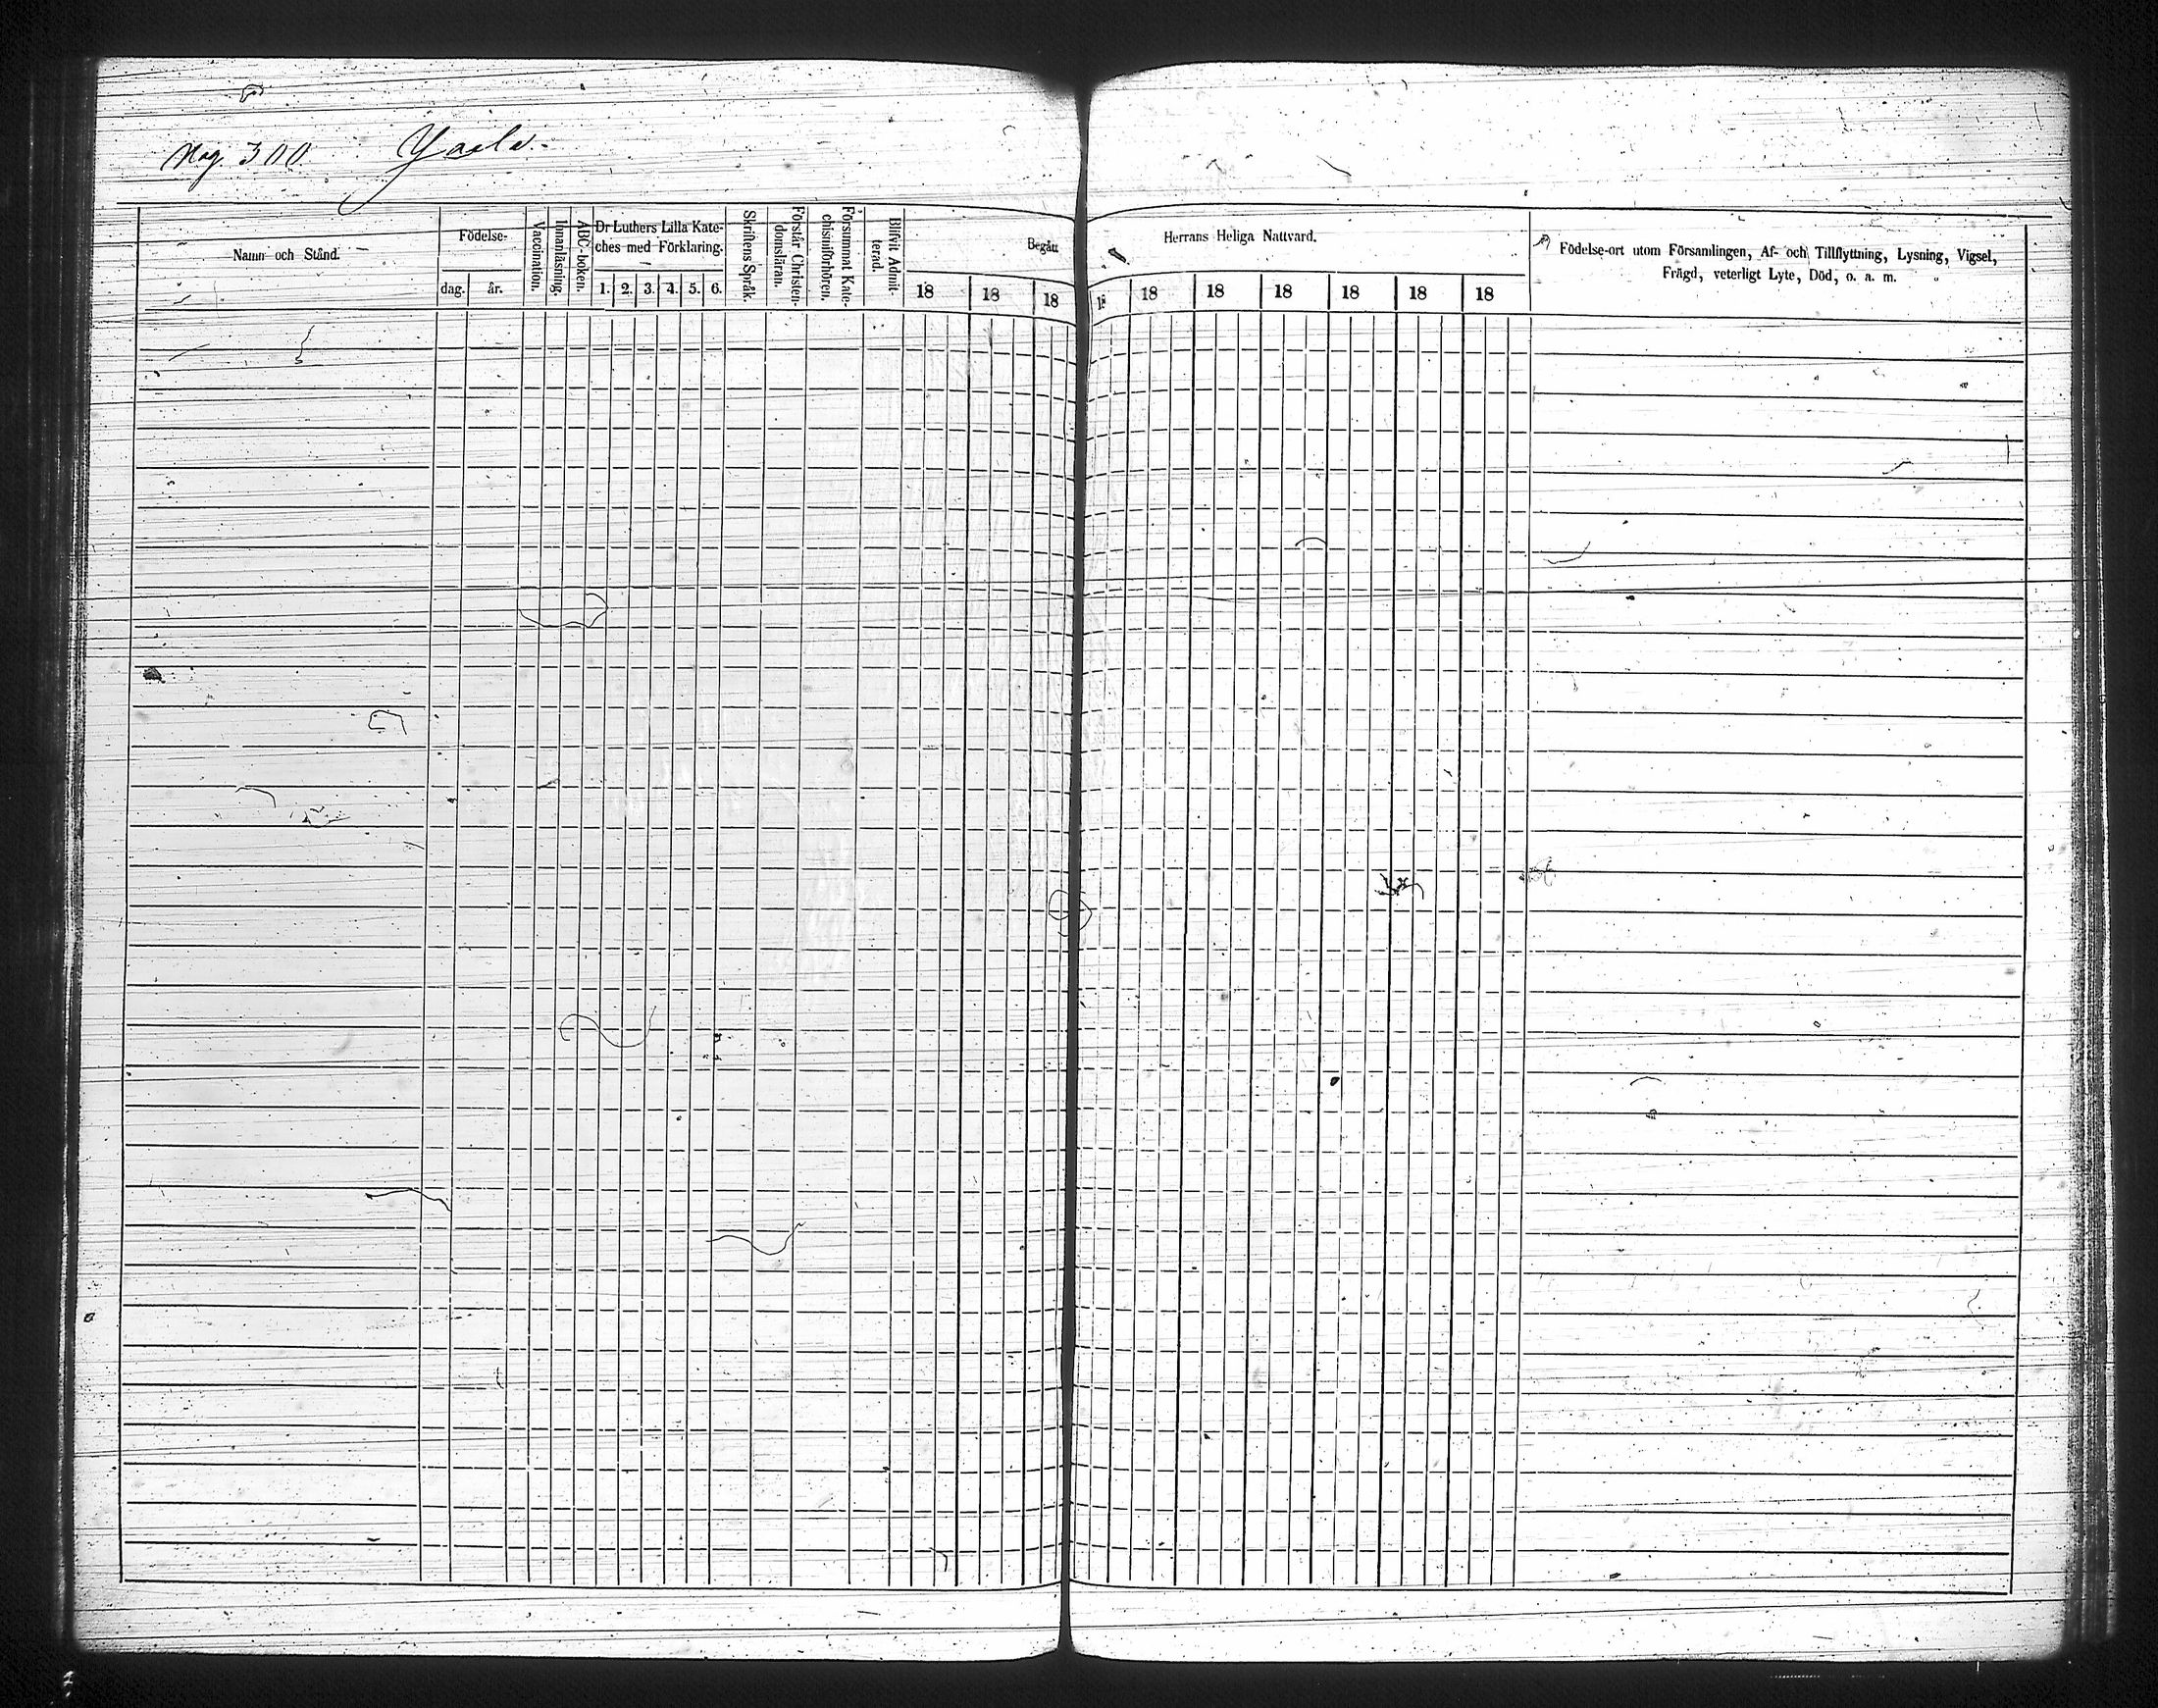 Pag. 300
Namn och Stånd.
Födelse-
dag.
år.
Vaccination.
Innanläsning.
ABC-boken.
Dr Luthers Lilla Kate-
ches med Förklaring.
1. 2. 3. 4. 5. 6.
Skriftens Språk.
Förstår Christen-
domsläran.
Försummat Kate-
chismiförhören.
Blifvit Admit-
terad.
Begått
18 18 18
Herrans Heliga Nattvard.
18 18 18 18 18 18
Födelse-ort utom Församlingen, Af- och Tillflyttning, Lysning, Vigsel,
Frägd, veterligt Lyte, Död, o. a. m.